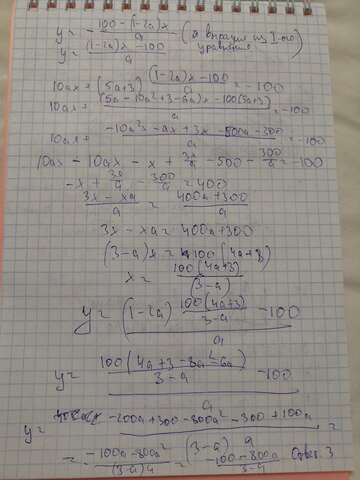 y = - \frac{100 - (1-2a)x}{a} - (я выразил из I-ого уравнения)
y = \frac{(1-2a)x - 100}{a}
10ax + (5a+3) \frac{(1-2a)x - 100}{a} = -100
10ax + \frac{(5a - 10a^2 + 3 - 6a)x - 100(5a+3)}{a} = -100
10ax + \frac{-10a^2x - ax + 3x - 500a - 300}{a} = -100
10ax - 10ax - x + \frac{3x}{a} - 500 - \frac{300}{a} = -100
-x + \frac{3x}{a} - \frac{300}{a} = 400
\frac{3x - xa}{a} = \frac{400a + 300}{a}
3x - xa = 400a + 300
(3-a)x = 100(4a+3)
x = \frac{100(4a+3)}{(3-a)}
y = \frac{(1-2a) \frac{100(4a+3)}{3-a} - 100}{a}
y = \frac{\frac{100(4a+3-8a^2-6a)}{3-a} - 100}{a}
y = \frac{-200a + 300 - 800a^2 - 300 + 100a}{(3-a)a} =
= \frac{-100a - 800a^2}{(3-a)a} = \frac{-100 - 800a}{3-a} Ответ. 3